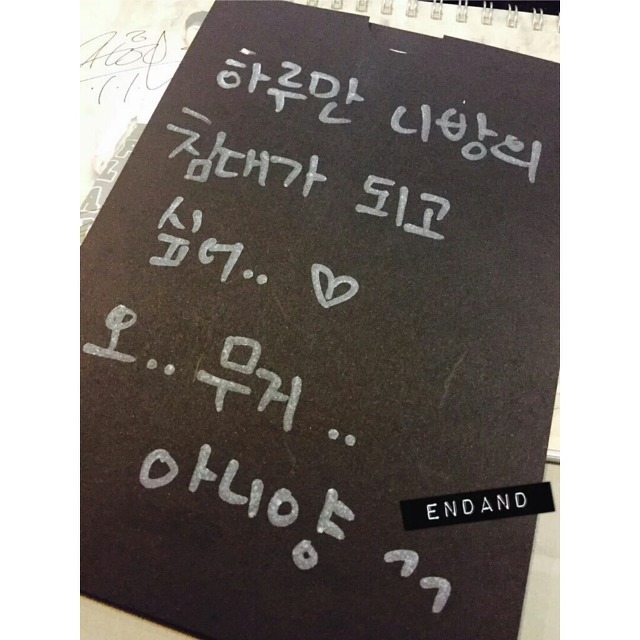 하루만 니방의
침대가 되고
싶어.. ♡
오.. 무거..
아니양 ^^
ENDAND